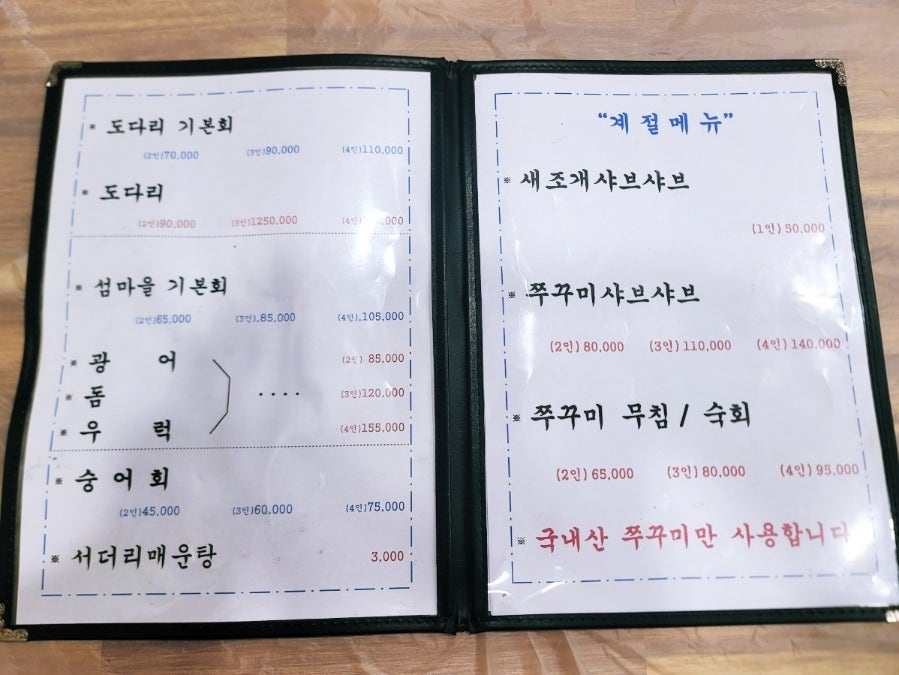 ※ 도다리 기본회
(2인)70,000 (3인)90,000 (4인)110,000
※ 도다리
(2인)90,000 (3인)1250,000 (4인)
※ 섬마을 기본회
(2인)65,000 (3인).85,000 (4인).105,000
※ 광 어 (2인) 85,000
※ 돔 .... (3인)120,000
※ 우 럭 (4인)155,000
※ 숭어회
(2인)45,000 (3인)60,000 (4인)75,000
※ 서더리매운탕 3,000
“계절메뉴”
※ 새조개샤브샤브
(1인) 50,000
※ 쭈꾸미샤브샤브
(2인) 80,000 (3인) 110,000 (4인) 140,000
※ 쭈꾸미 무침 / 숙회
(2인) 65,000 (3인) 80,000 (4인) 95,000
※ 국내산 쭈꾸미만 사용합니다